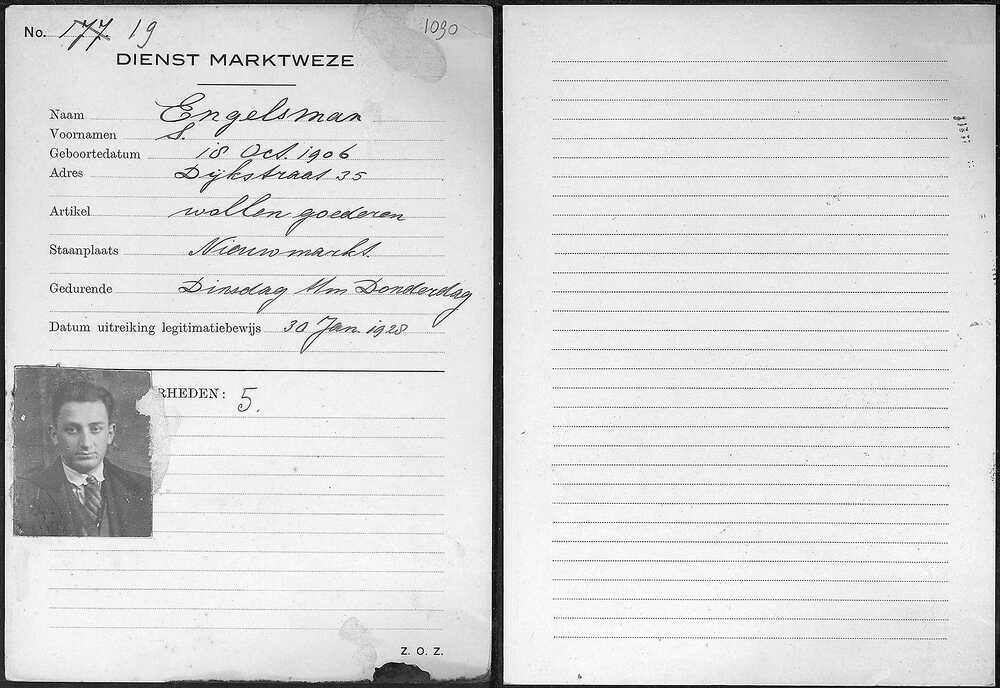 No. 177. 19 1090
DIENST MARKTWEZE
Naam Engelsman
Voornamen S.
Geboortedatum 18 Oct. 1906
Adres Dijkstraat 35
Artikel wollen goederen
Staanplaats Nieuwmarkt.
Gedurende Dinsdag t/m Donderdag
Datum uitreiking legitimatiebewijs 30 Jan. 1928
RHEDEN: 5.
Z. O. Z.